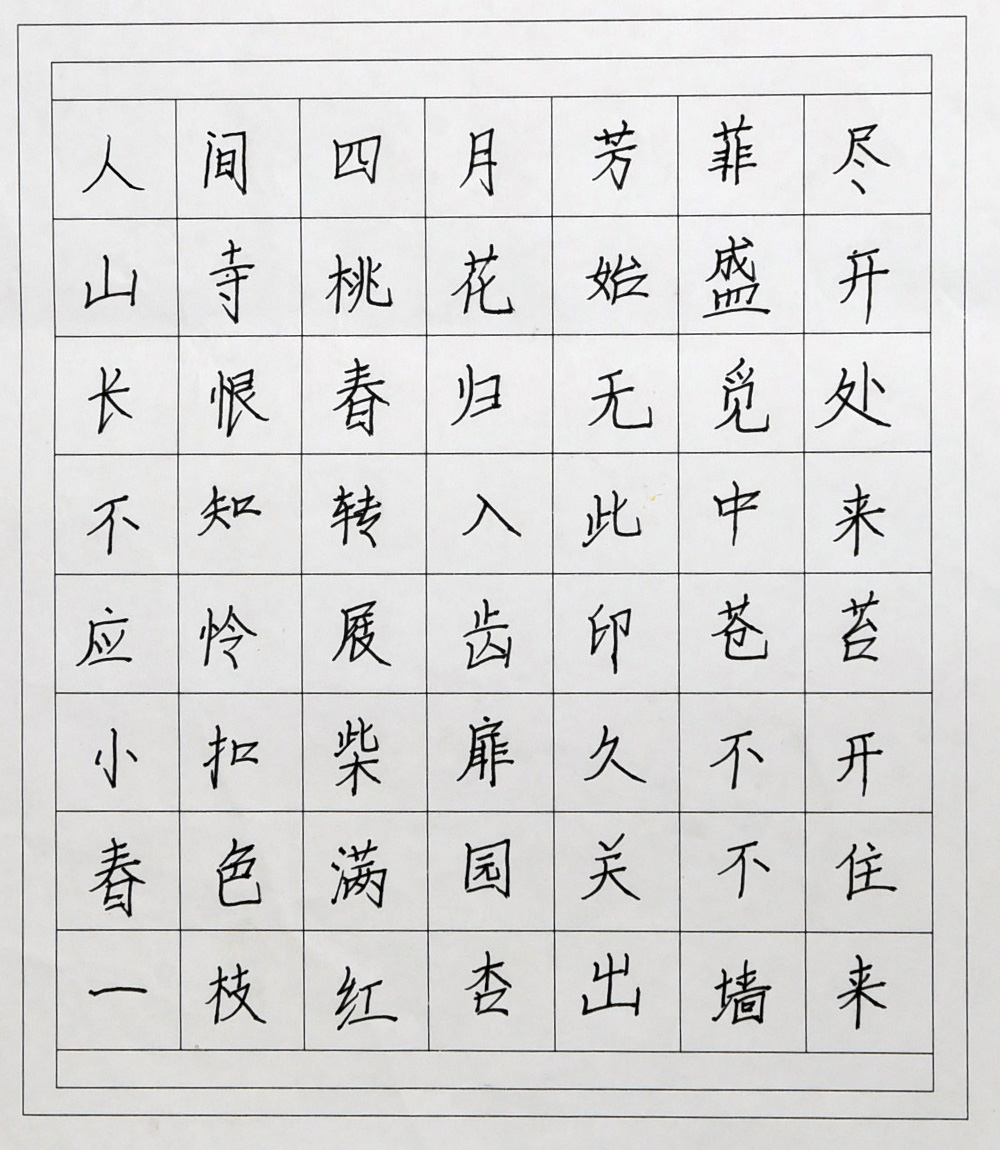 人间四月芳菲尽
山寺桃花始盛开
长恨春归无觅处
不知转入此中来
应怜展齿印苍苔
小扣柴扉久不开
春色满园关不住
一枝红杏出墙来